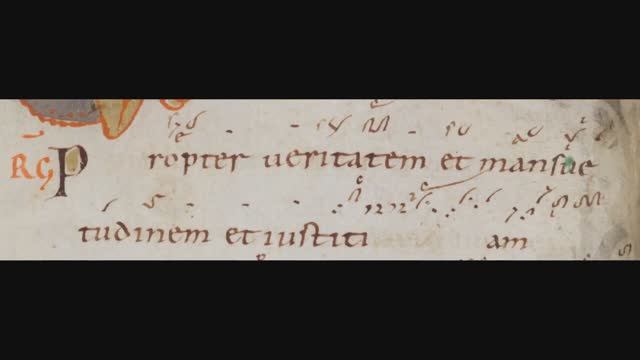 RG Propter ueritatem et mansue
tudinem et iustiti am